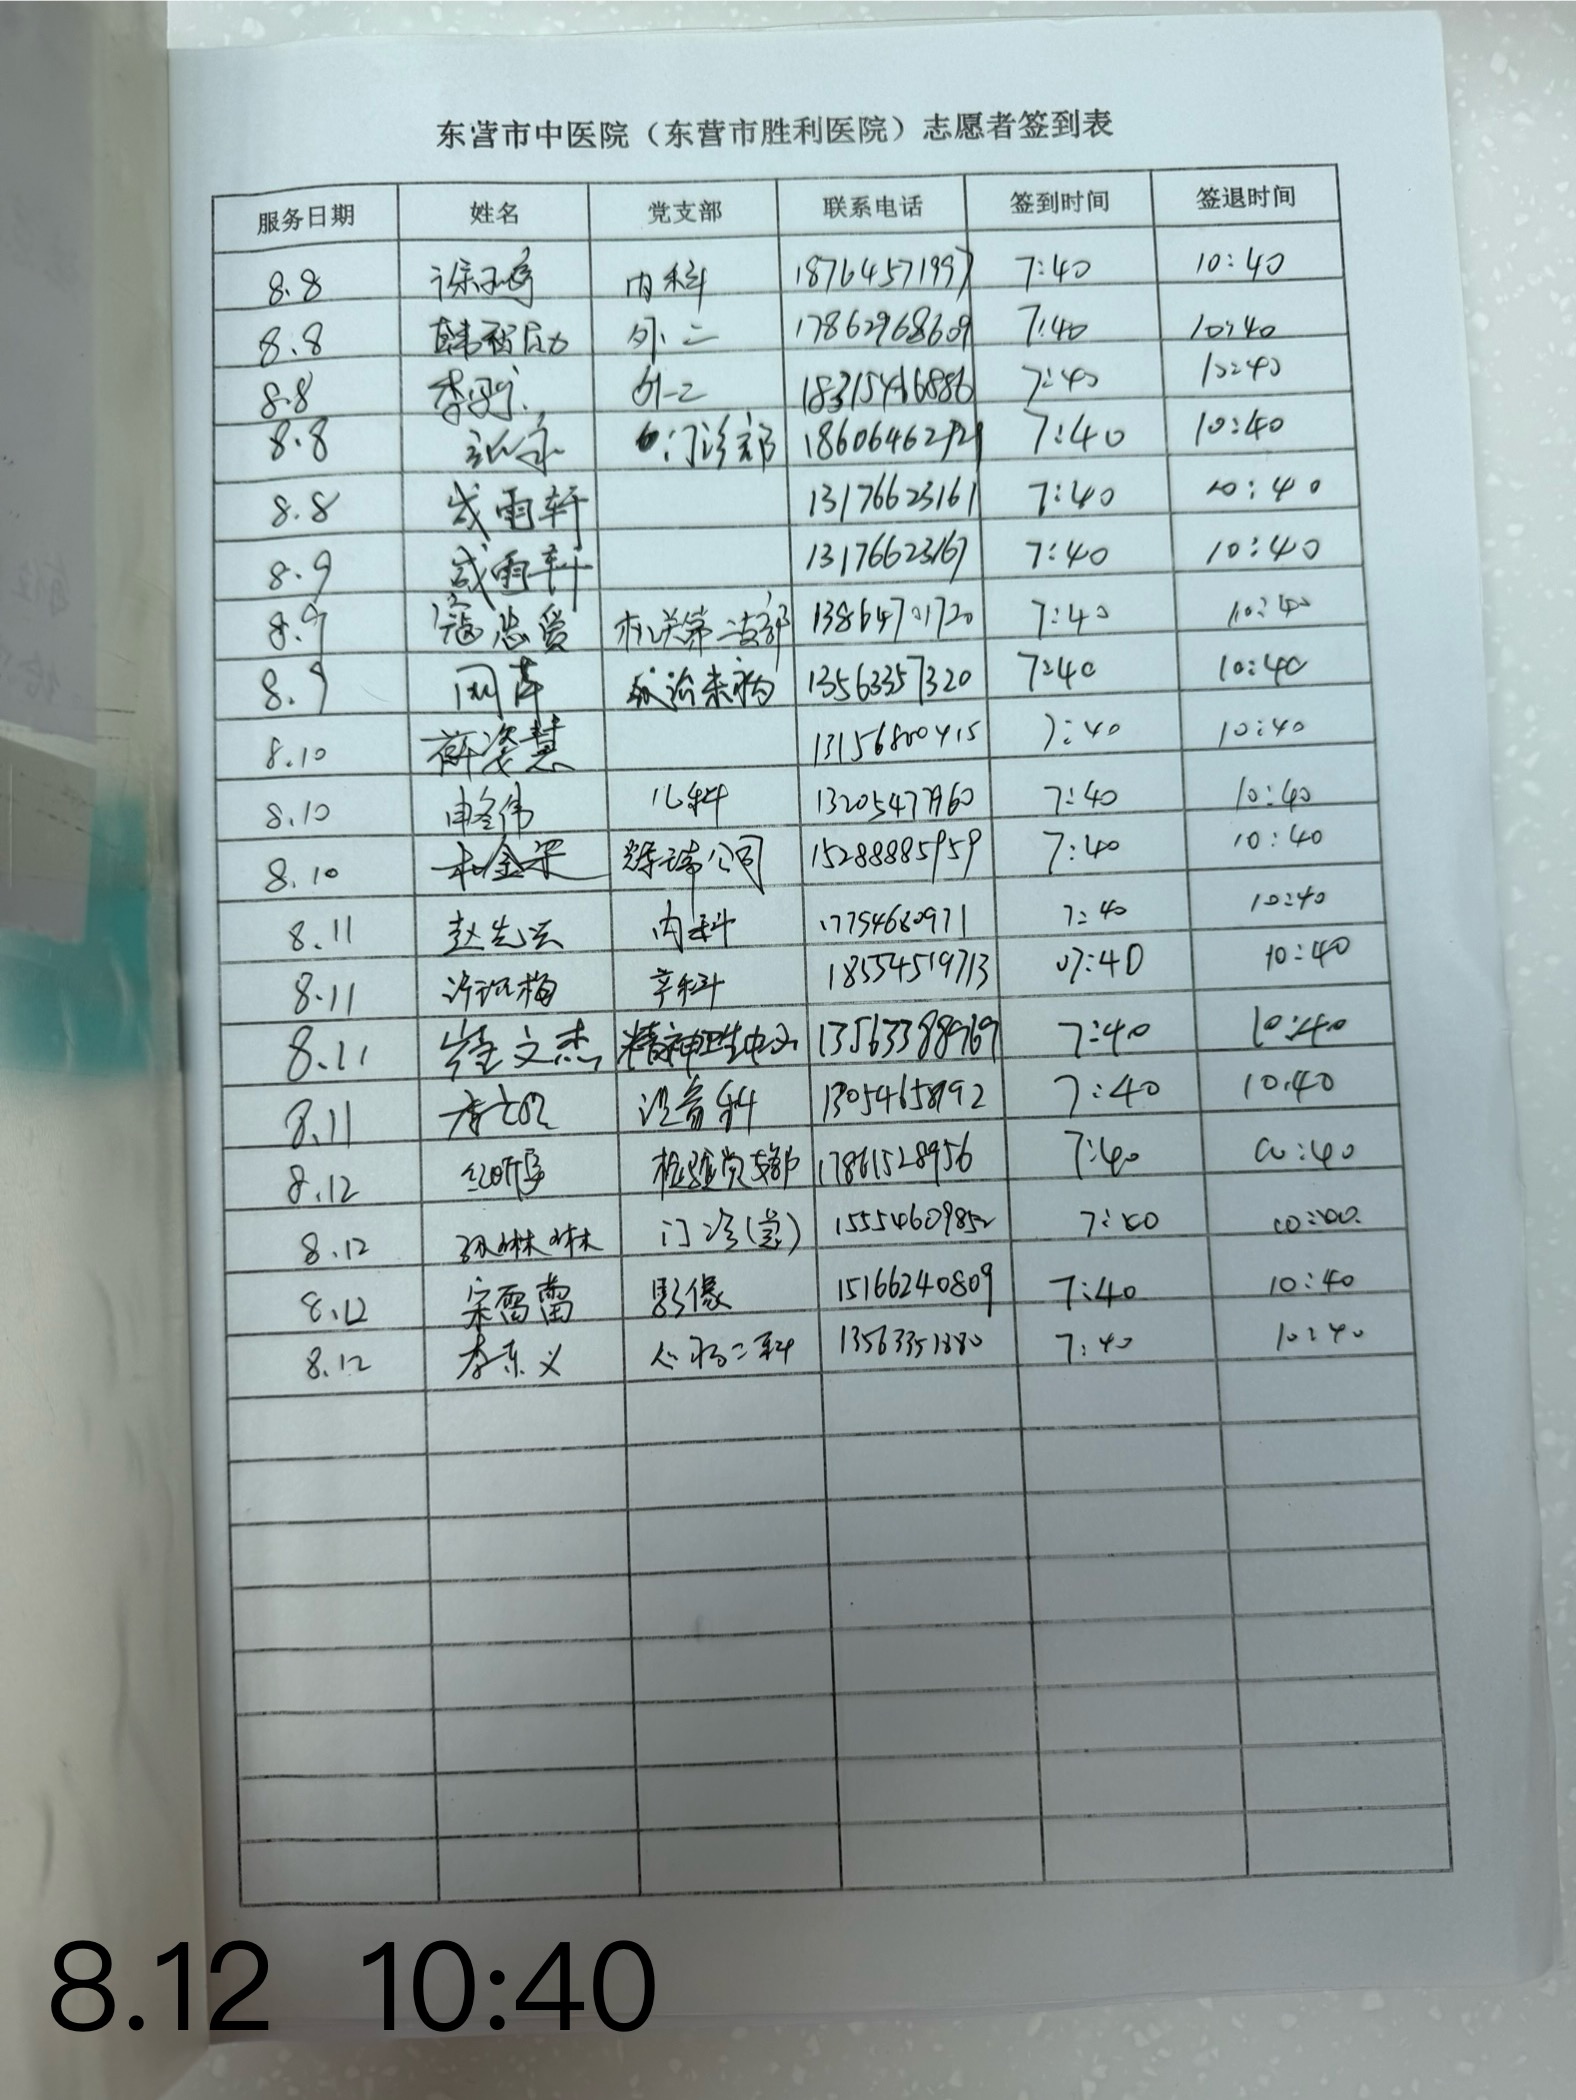 东营市中医院（东营市胜利医院）志愿者签到表
服务日期 姓名 党支部 联系电话 签到时间 签退时间
8.8 内科 18764571997 7:40 10:40
8.8 外二 17862968609 7:40 10:40
8.8 李 外二 18315416886 7:40 10:40
8.8 门诊部 7:40 10:40
8.8 戚雨轩 13176623161 7:40 10:40
8.9 戚雨轩 13176623167 7:40 10:40
8.9 寇总爱 机关第二支部 13864701720 7:40 10:40
8.9 周萍 13563357320 7:40 10:40
8.10 薛姿慧 13156800415 7:40 10:40
8.10 儿科 13205477960 7:40 10:40
8.10 公司 15288885959 7:40 10:40
8.11 赵先云 内科 17754680971 7:40 10:40
8.11 18554519713 07:40 10:40
8.11 崔文杰 精神卫生中心 13563388969 7:40 10:40
8.11 13054658992 7:40 10:40
8.12 检验党支部 17861528956 7:40 10:40
8.12 孙琳琳 15554609852
8.12 宋雷蕾 影像 15166240809 7:40 10:40
8.12 李东义 二科 13563351880 7:40 10:40
8.12 10:40